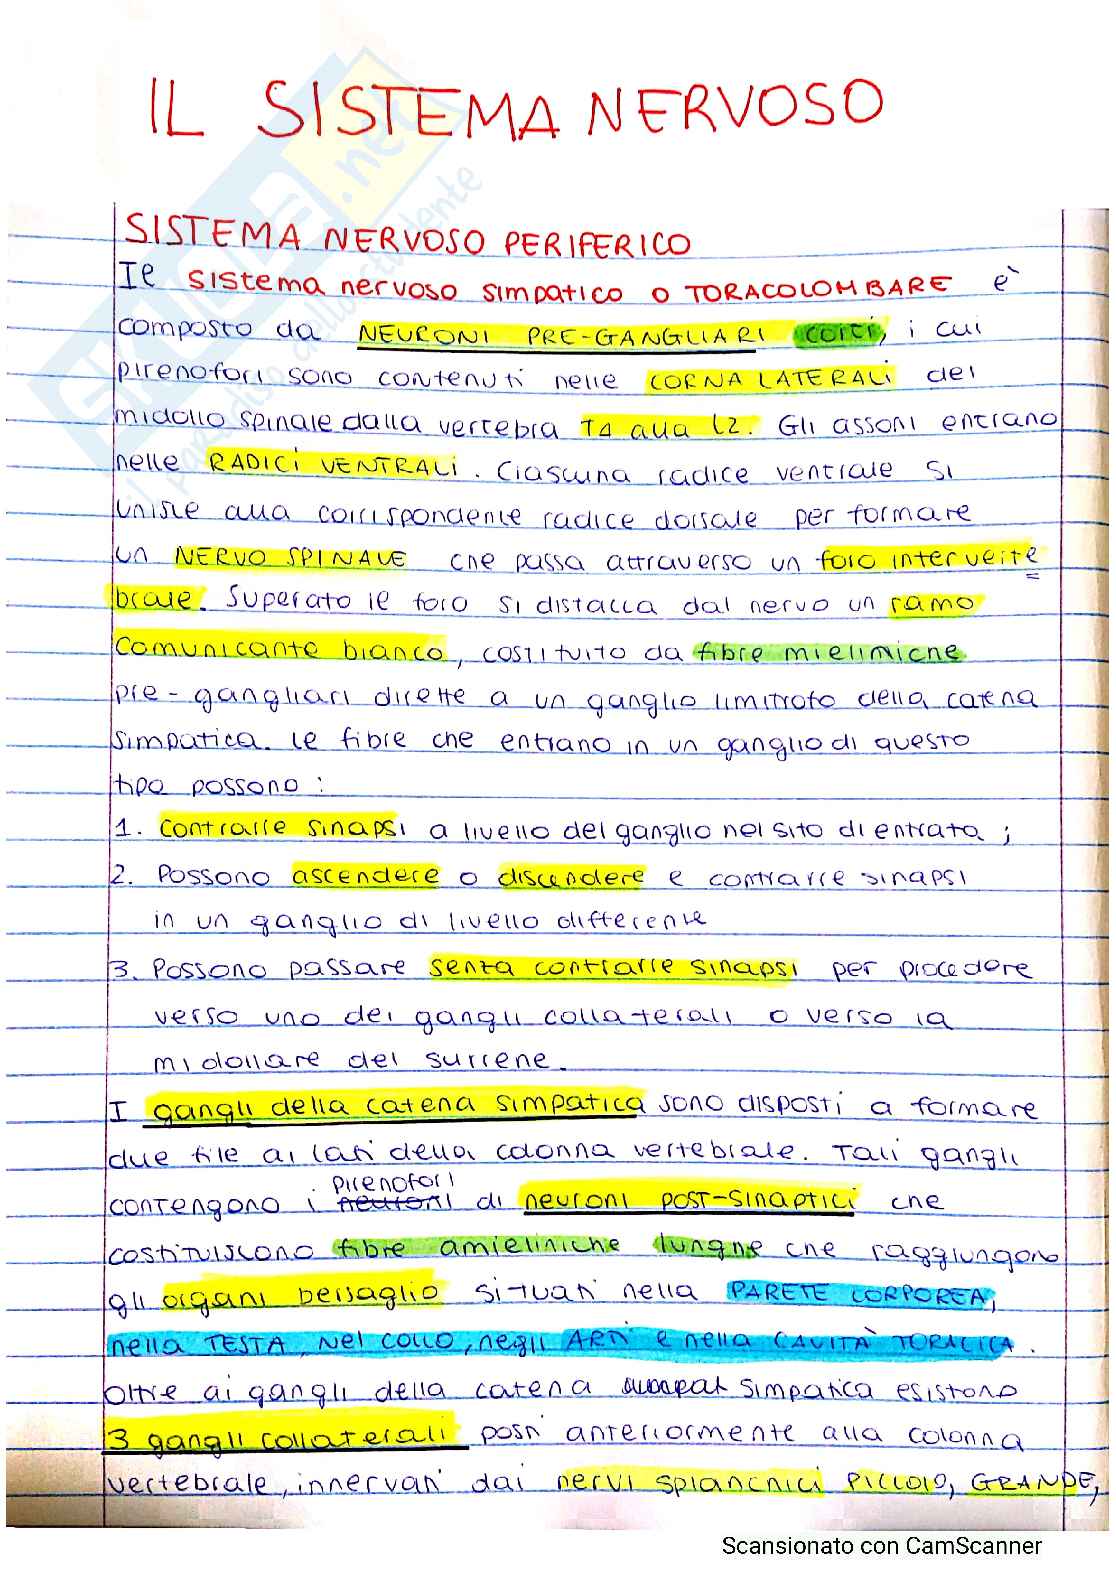 IL SISTEMA NERVOSO
SISTEMA NERVOSO PERIFERICO
Il sistema nervoso simpatico o TORACOLOMBARE è
composto da NEURONI PRE-GANGLIARI corti, i cui
pirenofori sono contenuti nelle CORNA LATERALI del
midollo spinale dalla vertebra T1 alla L2. Gli assoni entrano
nelle RADICI VENTRALI. Ciascuna radice ventrale si
unisce alla corrispondente radice dorsale per formare
un NERVO SPINALE che passa attraverso un foro interverte
brale. Superato il foro si distacca dal nervo un ramo
comunicante bianco, costituito da fibre mieliniche
pre-gangliari dirette a un ganglio limitrofo della catena
simpatica. Le fibre che entrano in un ganglio di questo
tipo possono:
1. Contrarre sinapsi a livello del ganglio nel sito di entrata;
2. Possono ascendere o discendere e contrarre sinapsi
in un ganglio di livello differente
3. Possono passare senza contrarre sinapsi per procedere
verso uno dei gangli collaterali o verso la
midollare del surrene.
I gangli della catena simpatica sono disposti a formare
due file ai lati della colonna vertebrale. Tali gangli
pirenofori
contengono i neuroni di neuroni post-sinaptici che
costituiscono fibre amieliniche lunghe che raggiungono
gli organi bersaglio situati nella PARETE CORPOREA,
nella TESTA, nel collo, negli ARTI e nella CAVITÀ TORACICA.
Oltre ai gangli della catena simpatica esistono
3 gangli collaterali posti anteriormente alla colonna
vertebrale, innervati dai nervi splancnici PICCOLO, GRANDE,
Scansionato con CamScanner